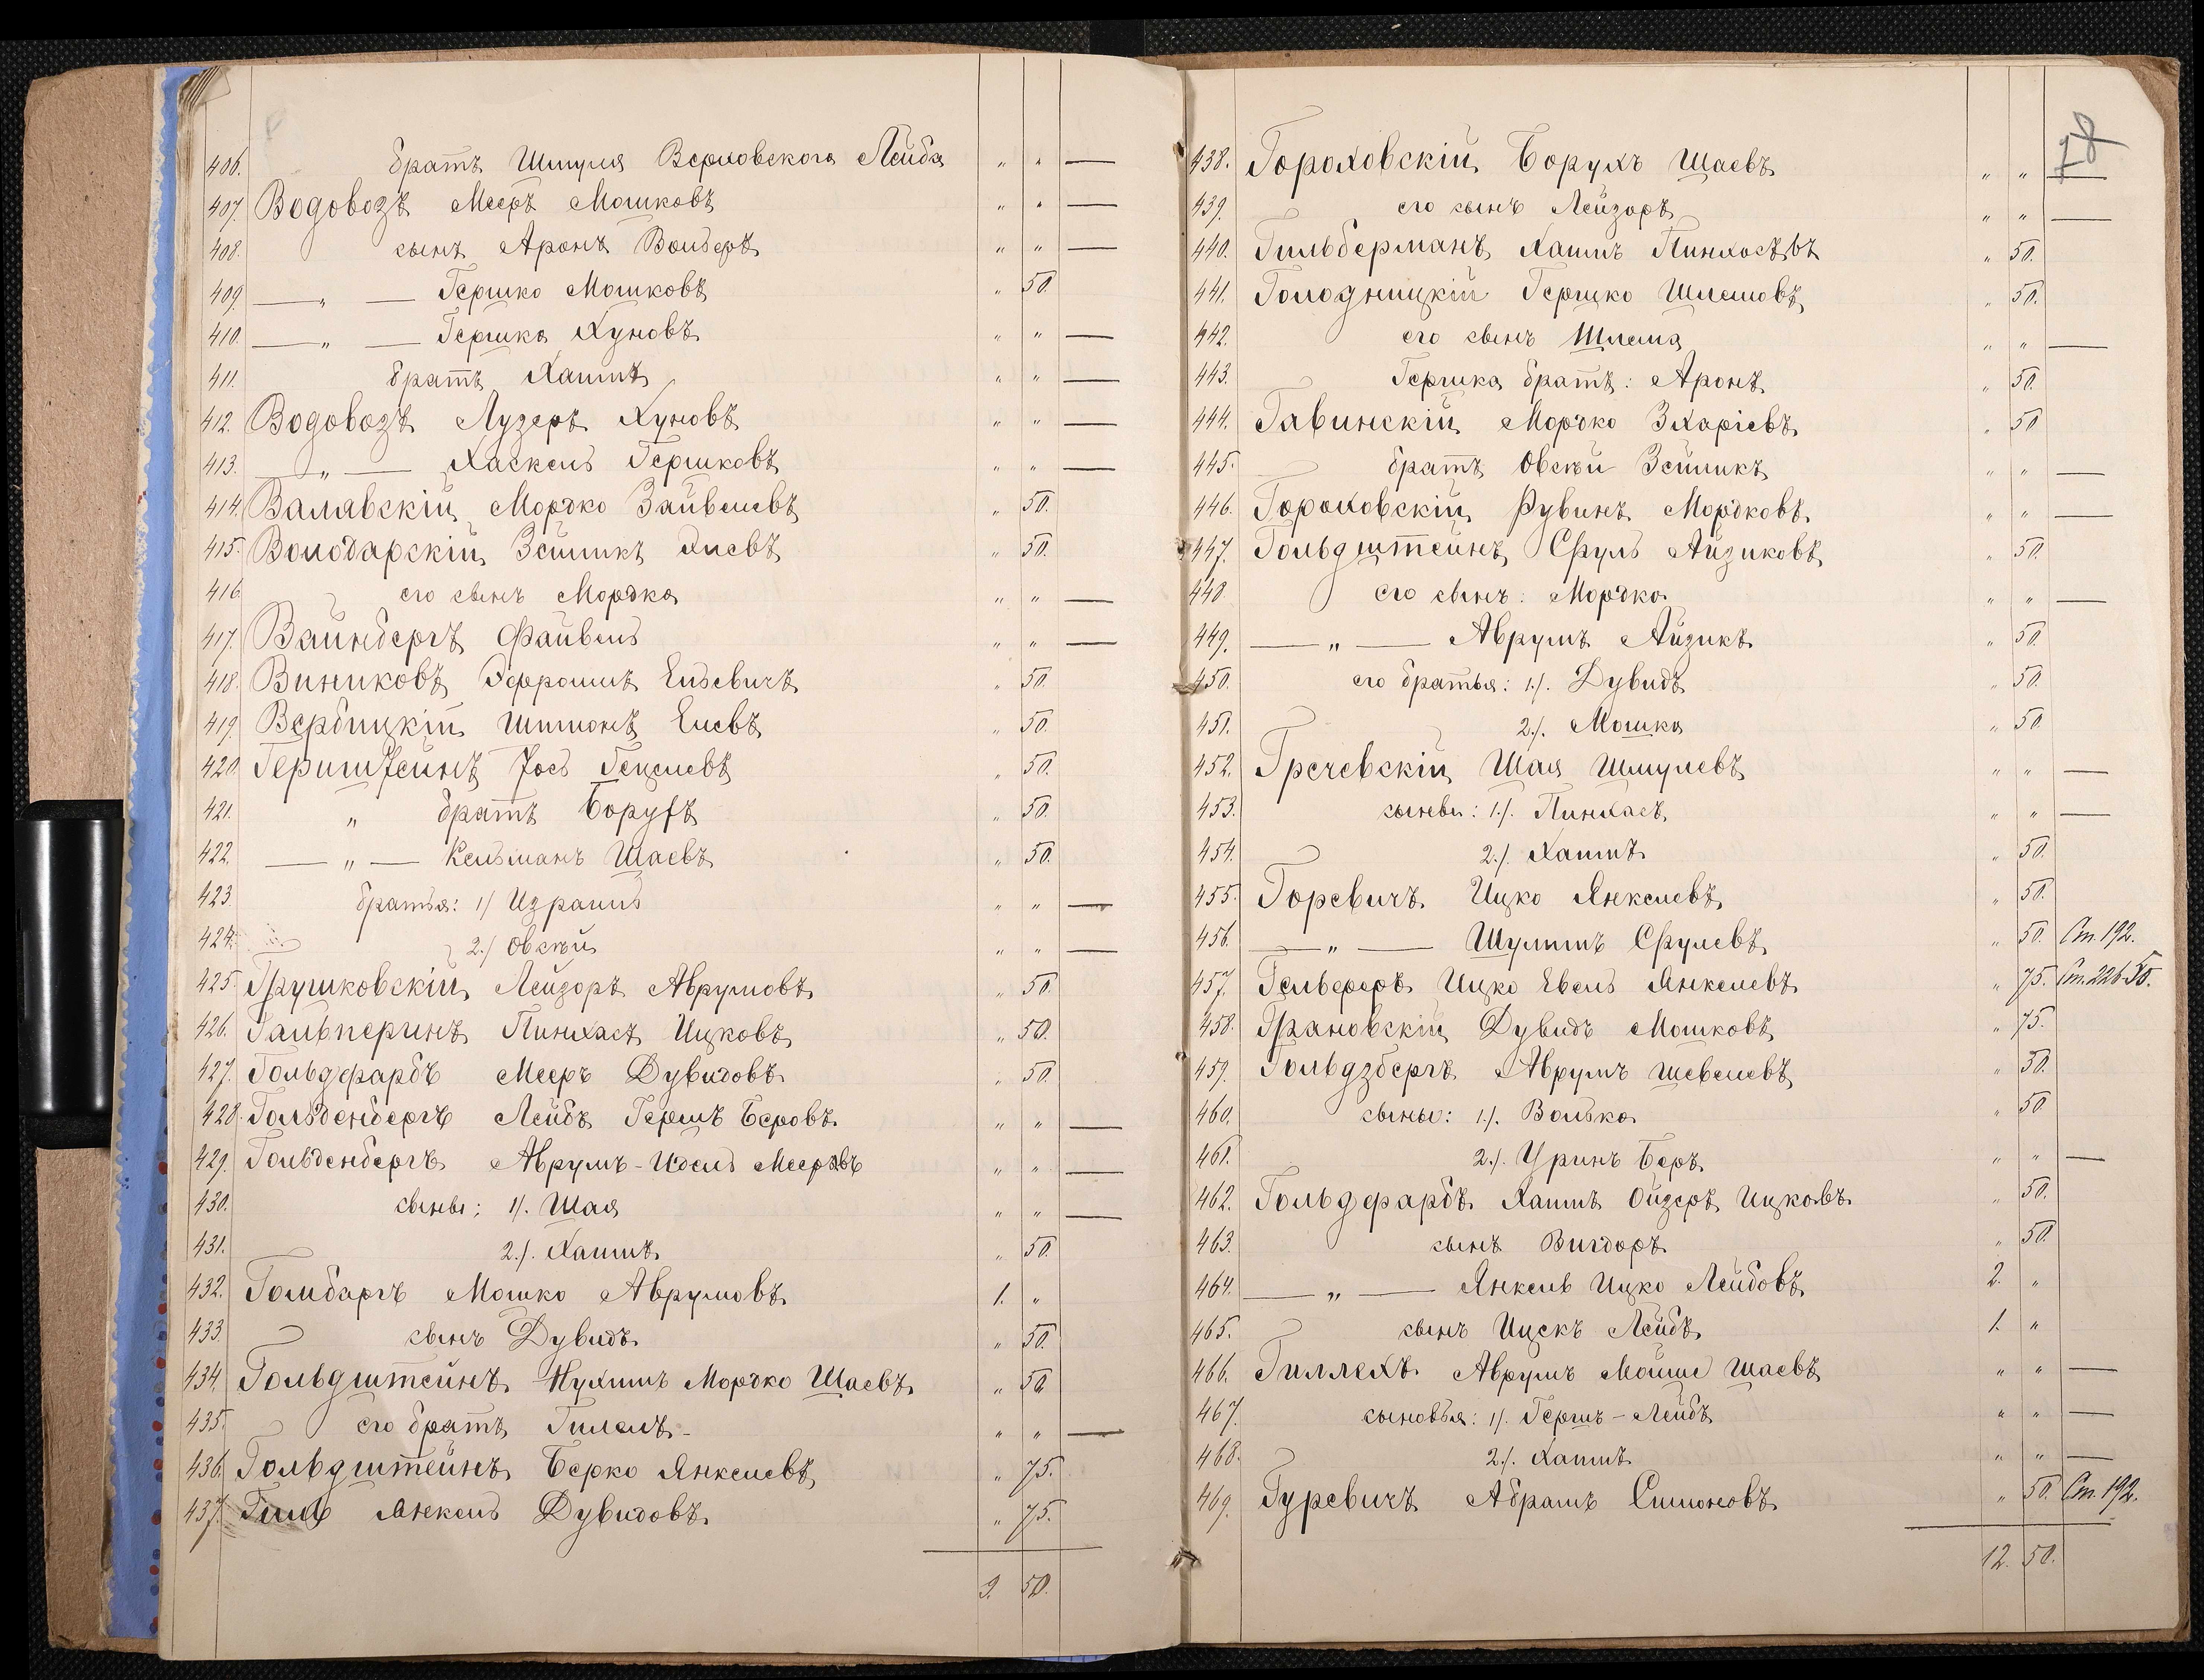 406. братъ Шмуля Верховскаго Лейба " " —
407. Водовозъ Мееръ Мошковъ " " —
408. сынъ Аронъ Вольберъ " " —
409. — " — Гершко Мошковъ " 50.
410. — " — Гершка Хуновъ " " —
411. братъ Хаимъ " " —
412. Водовозъ Лузеръ Хуновъ " " —
413. — " — Хаскель Гершковъ " " —
414. Валявскій Мордко Зайвелевъ " 50.
415. Володарскій Зейликъ Хиевъ " 50.
416. его сынъ Мордка " " —
417. Вайнбергъ Файвель " " —
418. Виниковъ Эфроимъ Ельевичъ " 50.
419. Вербицкій Шимонъ Елевъ " 50.
420. Герштейнъ Іось Гецелевъ " 50.
421. " братъ Борухъ " 50.
422. — " — Кельманъ Шаевъ " 50.
423. братья: 1/ Израиль " " —
424. 2./ Овсѣй " " —
425. Грушковскій Лейзоръ Аврумовъ " 50.
426. Гальперинъ Пинхасъ Ицковъ " 50.
427. Гольдфарбъ Мееръ Дувидовъ " 50.
428. Гольденбергъ Лейбъ Гершъ Беровъ " " —
429. Гольденбергъ Аврумъ-Идель Мееровъ " " —
430. сыны: 1/. Шая " " —
431. 2./. Хаимъ " 50.
432. Гомбаргъ Мошко Аврумовъ 1. "
433. сынъ Дувидъ " 50.
434. Гольдштейнъ Нухимъ Мордко Шаевъ " 50.
435. его братъ Гилель " " —
436. Гольдштейнъ Берко Янкелевъ " 75.
437. Гиль Янкель Дувидовъ " 75.
9. 50.
78
438. Гороховскій Борухъ Шаевъ " " —
439. его сынъ Лейзоръ " " —
440. Гильберманъ Хаимъ Пинхосѣвъ " 50.
441. Голодницкій Герцко Шлемовъ " 50.
442. его сынъ Шлема " " —
443. Гершка братъ: Аронъ " 50.
444. Гавинскій Мордко Зхаріевъ " 50
445. братъ Овсѣй Зейликъ " " —
446. Гороховскій Рувинъ Мордковъ " " —
447. Гольдштейнъ Сруль Айзиковъ " 50.
448. его сынъ: Мордко " " —
449. — " — Аврумъ Айзикъ " 50
450. его братья: 1./. Дувидъ " 50.
451. 2./. Мошка " 50.
452. Гречевскій Шая Шмулевъ " " —
453. сыновы: 1./. Пинхасъ " " —
454. 2./. Хаимъ " 50.
455. Горевичъ Ицко Янкелевъ " 50.
456. — " — Шулимъ Срулевъ " 50. Ст. 192.
457. Гельфферъ Ицко Евель Янкелевъ " 75. Ст. 226-50.
458. Грановскій Дувидъ Мошковъ " 75.
459. Гольдзбергъ Аврумъ Шевелевъ " 50.
460. сыны: 1./. Волька " 50
461. 2./. Уринъ Беръ " " —
462. Гольдфарбъ Хаимъ Ойзеръ Ицковъ " 50.
463. сынъ Вигдоръ " 50.
464. — " — Янкель Ицко Лейбовъ 2. "
465. сынъ Ицекъ Лейбъ 1. "
466. Гиллехъ Аврумъ Мойше Шаевъ " " —
467. сыновья: 1/. Гершъ-Лейбъ " " —
468. 2./. Хаимъ " " —
469. Гуревичъ Абрамъ Симоновъ " 50. Ст. 192.
12. 50.